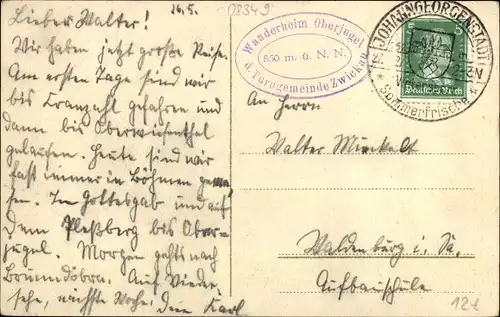 26.5.
08349
Lieber Walter!
Wir haben jetzt große Reise.
Am ersten Tage sind wir
bis Cranzahl gefahren und
dann bis Oberwiesenthal
gelaufen. Heute sind wir
fast immer in Böhmen gewe-
sen. In Gottesgab und auf
dem Pleßberg bis Ober-
jugel. Morgen gehts nach
Brunndöbra. Auf Wieder-
sehe, nächste Woche. Dein Karl
Wanderheim Oberjugel
850 m. ü. N. N.
d. Turngemeinde Zwickau
JOHANNGEORGENSTADT
Sommerfrische
Deutsches Reich
An Herrn
Walter Minkelt
Waldenburg i. Sa.
Aufbauschule
12€